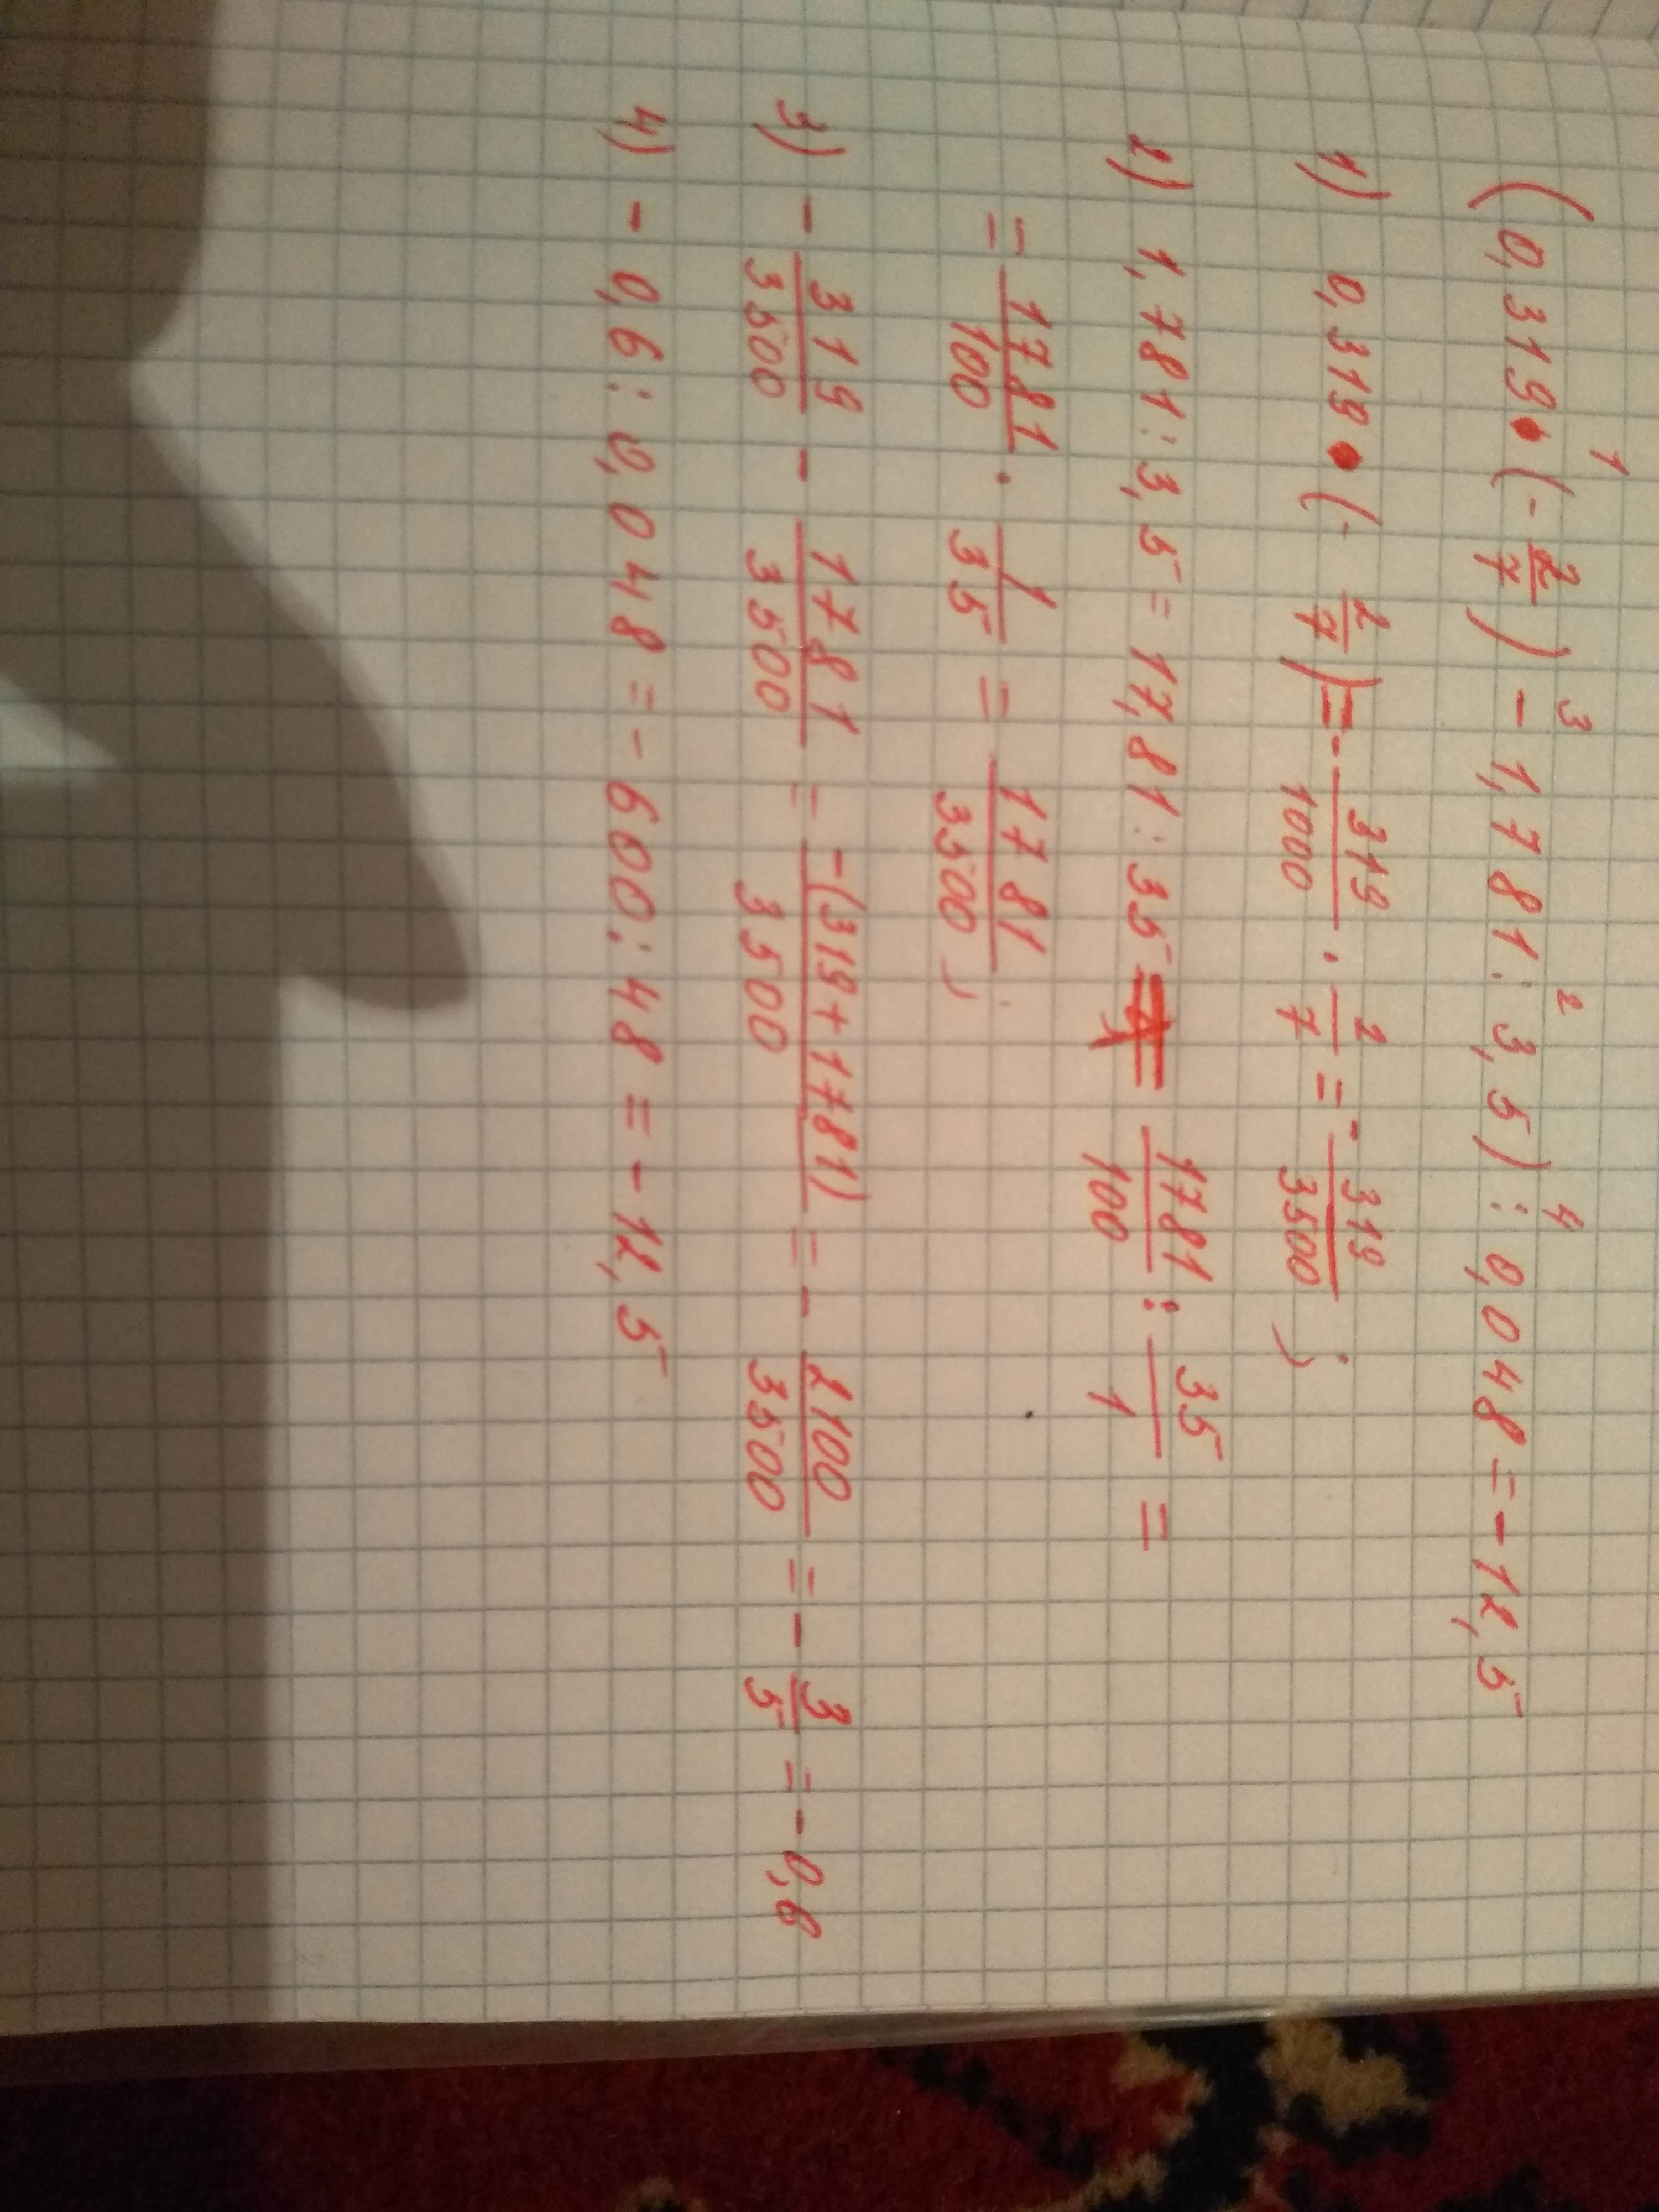 (0,319·(-2/7) - 1,781:3,5):0,048=-12,5
1 3 2 4
1) 0,319·(-2/7)=-319/1000·2/7=-319/3500;
2) 1,781:3,5=17,81:35=1781/100:35/1=
=1781/100·1/35=1781/3500;
3) -319/3500-1781/3500=-(319+1781)/3500=-2100/3500=-3/5=-0,6
4) -0,6:0,048=-600:48=-12,5